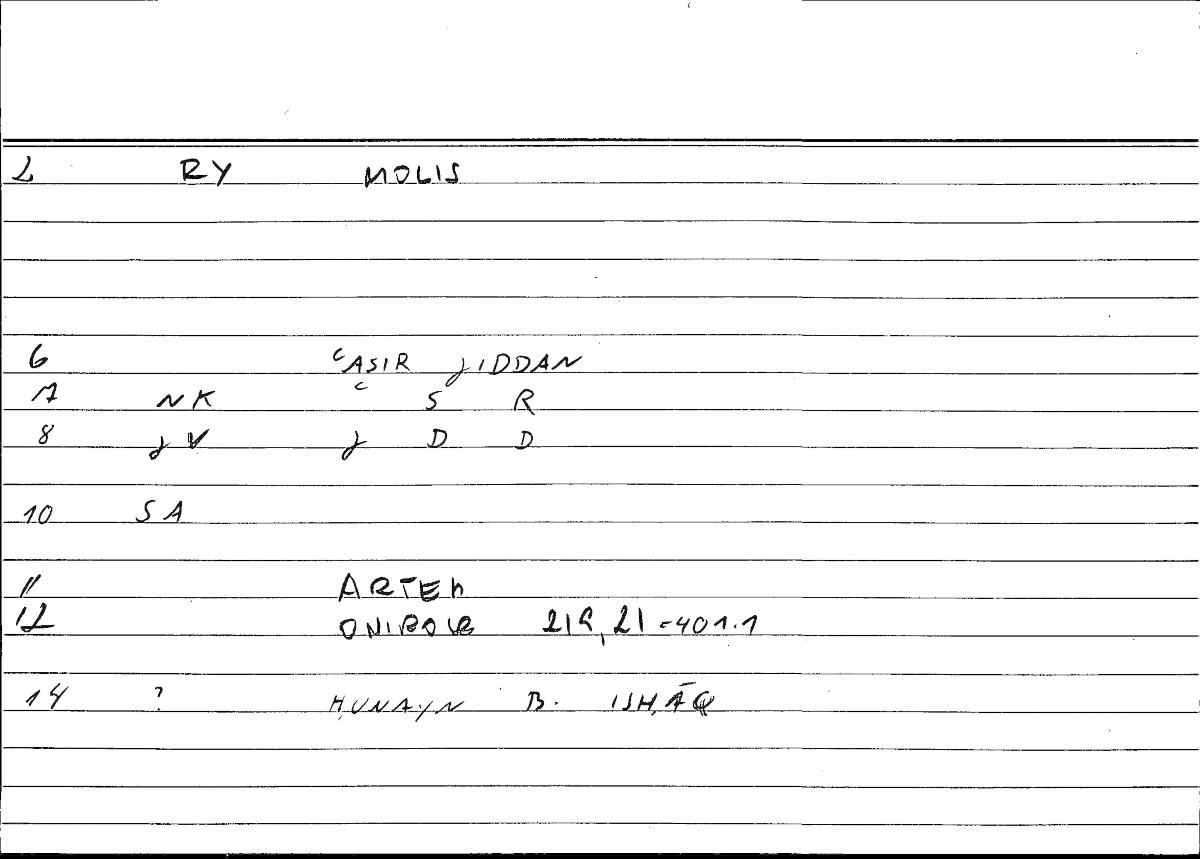 2 RY MOLIS
6 ʿASIR JIDDAN
7 NK ʿ S R
8 JV J D D
10 SA
11 ARTEM
12 ONIROCR 219,21=401.1
14 ? ḤUNAYN B. ISḤĀQ